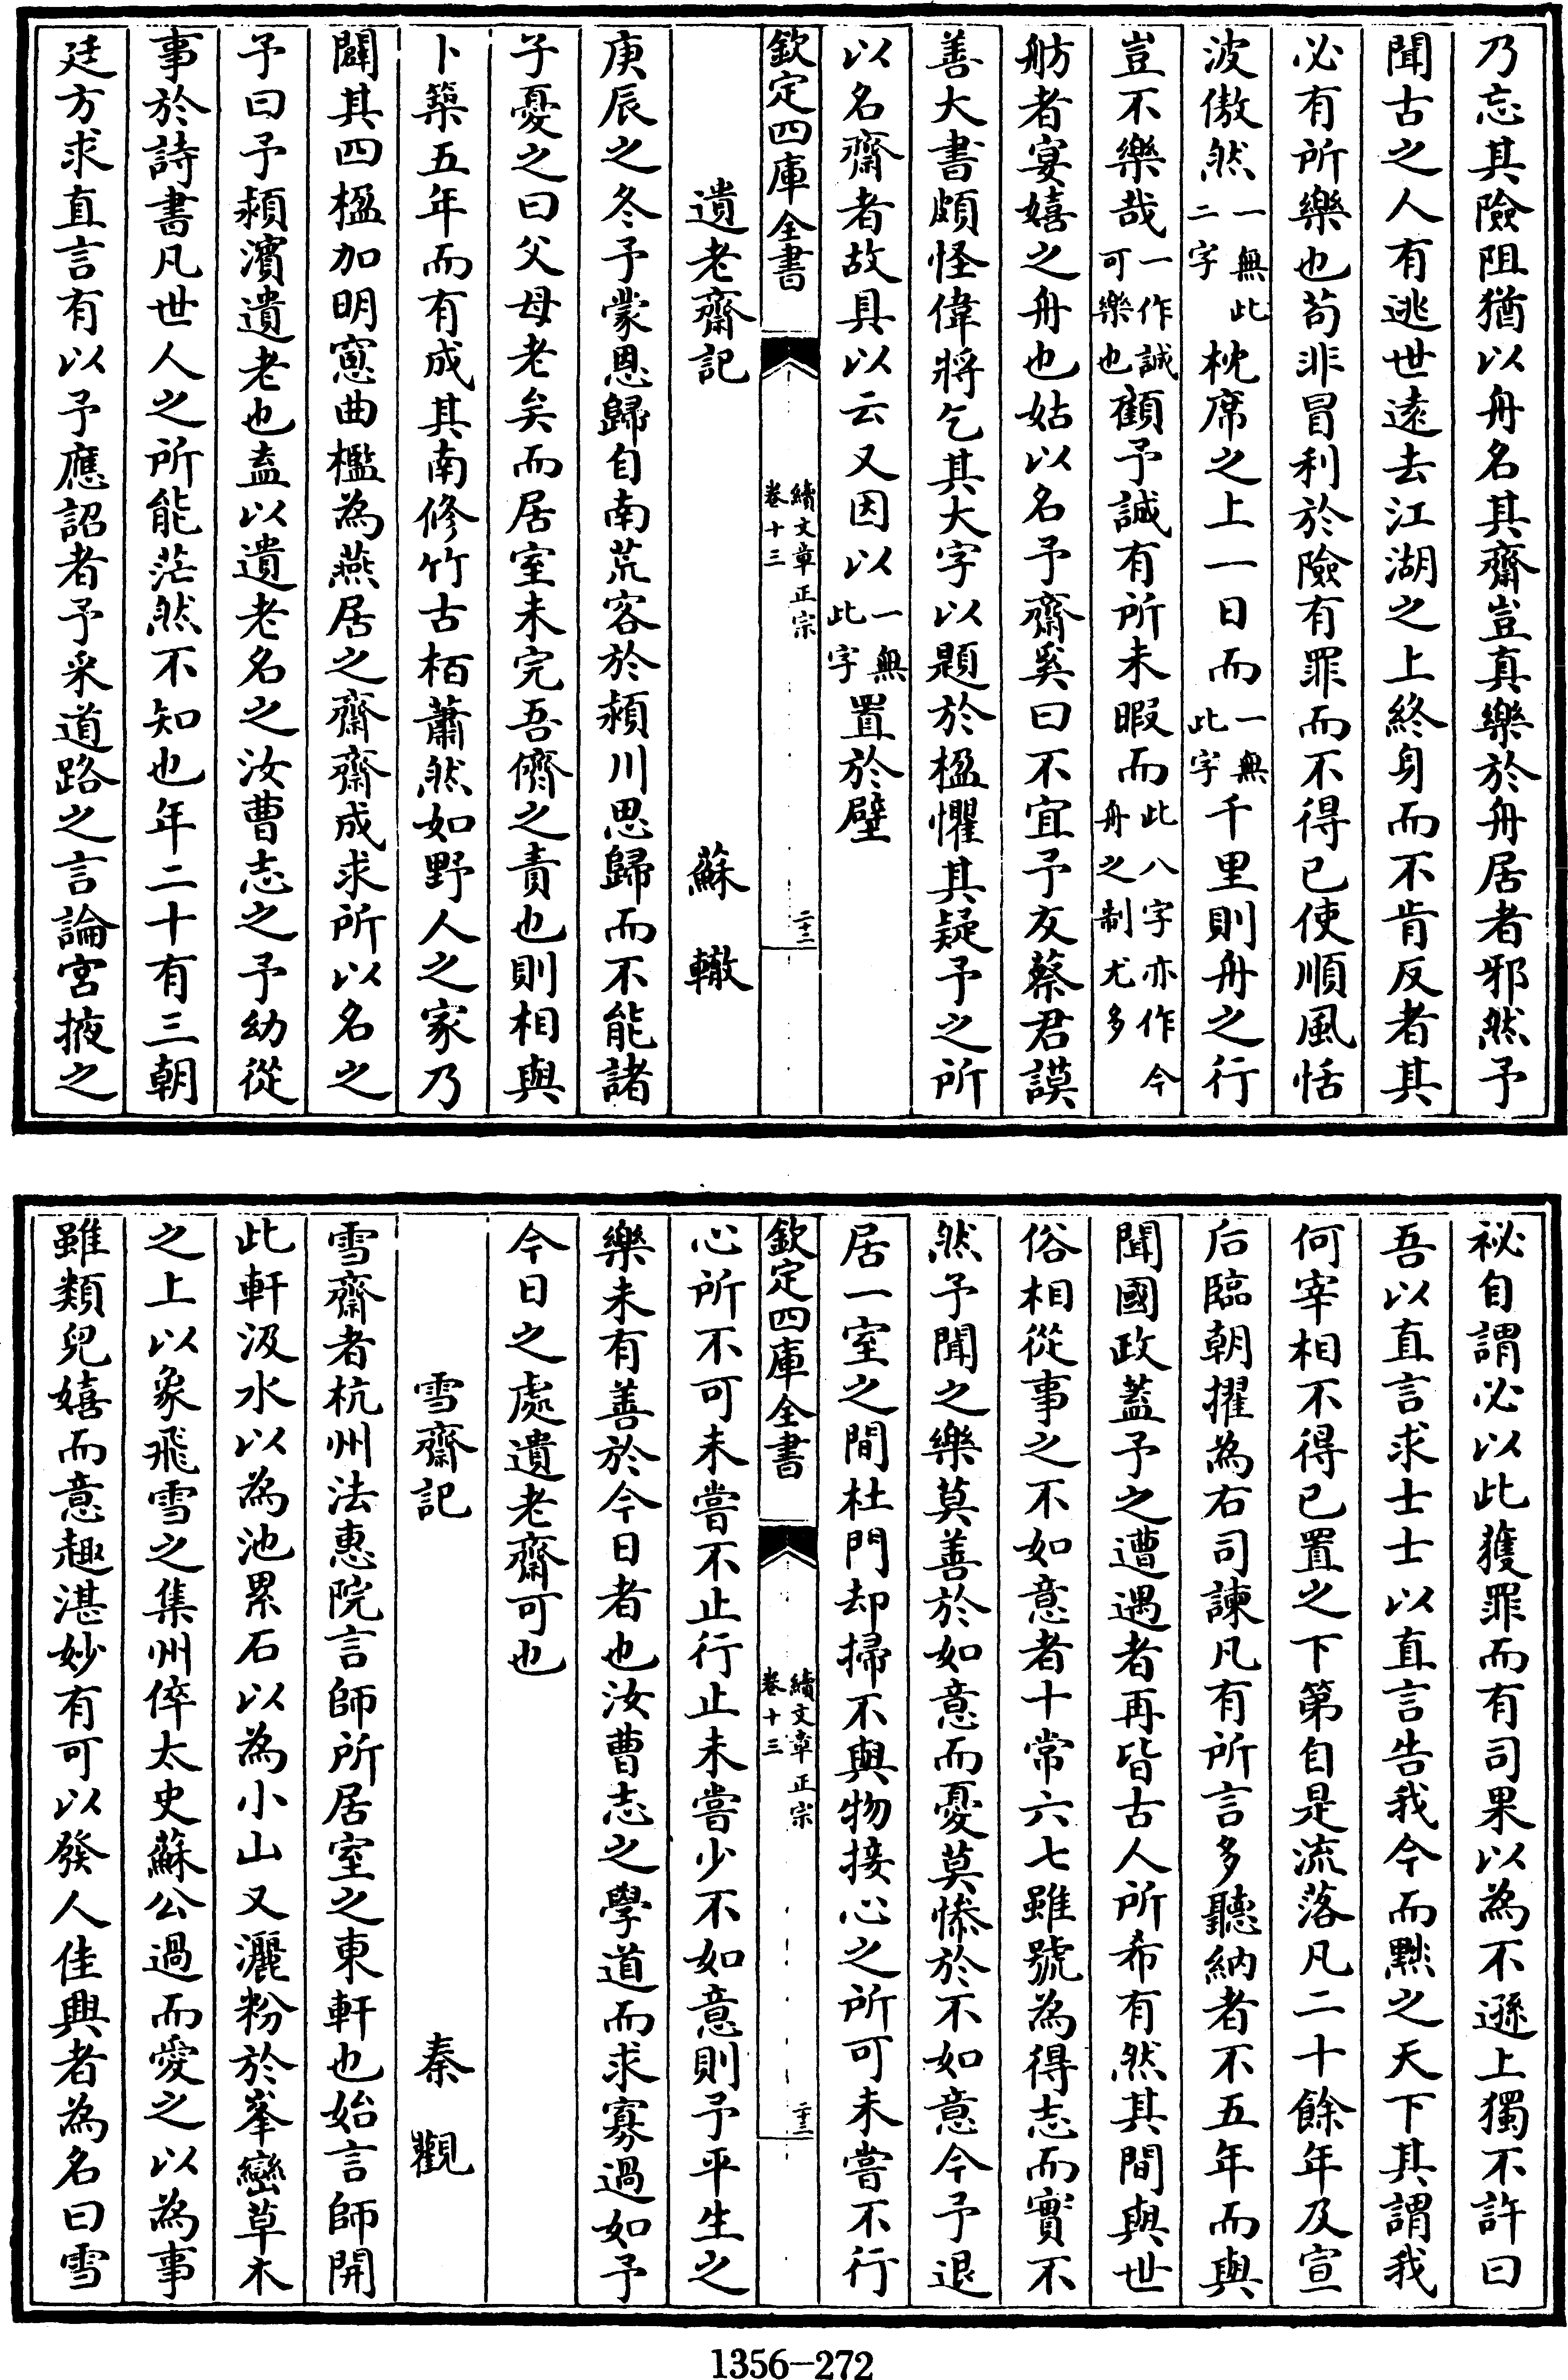 乃忘其險阻猶以舟名其齋豈真樂於舟居者邪然予
聞古之人有逃世遠去江湖之上終身而不肯反者其
必有所樂也苟非冒利於險有罪而不得已使順風恬
波傲然一無此二字枕席之上一日而一無此字千里則舟之行
豈不樂哉一作誠可樂也顧予誠有所未暇而此八字亦作今舟之制尤多
舫者宴嬉之舟也姑以名予齋奚曰不宜予友蔡君謨
善大書頗怪偉將乞其大字以題於楹懼其疑予之所
以名齋者故具以云又因以一無此字置於壁
欽定四庫全書 續文章正宗 卷十三 二十二
遺老齋記 蘇轍
庚辰之冬予蒙恩歸自南荒客於潁川思歸而不能諸
子憂之曰父母老矣而居室未完吾儕之責也則相與
卜築五年而有成其南修竹古栢蕭然如野人之家乃
闢其四楹加明窻曲檻為燕居之齋齋成求所以名之
予曰予潁濱遺老也盍以遺老名之汝曹志之予幼從
事於詩書凡世人之所能茫然不知也年二十有三朝
廷方求直言有以予應詔者予采道路之言論宮掖之
祕自謂必以此獲罪而有司果以為不遜上獨不許曰
吾以直言求士士以直言告我今而黜之天下其謂我
何宰相不得已置之下第自是流落凡二十餘年及宣
后臨朝擢為右司諫凡有所言多聽納者不五年而與
聞國政蓋予之遭遇者再皆古人所希有然其間與世
俗相從事之不如意者十常六七雖號為得志而實不
然予聞之樂莫善於如意而憂莫慘於不如意今予退
居一室之間杜門却掃不與物接心之所可未嘗不行
欽定四庫全書 續文章正宗 卷十三 二十三
心所不可未嘗不止行止未嘗少不如意則予平生之
樂未有善於今日者也汝曹志之學道而求寡過如予
今日之處遺老齋可也
雪齋記 秦觀
雪齋者杭州法惠院言師所居室之東軒也始言師開
此軒汲水以為池累石以為小山又灑粉於峯巒草木
之上以象飛雪之集州倅太史蘇公過而愛之以為事
雖類兒嬉而意趣湛妙有可以發人佳興者為名曰雪
1356-272